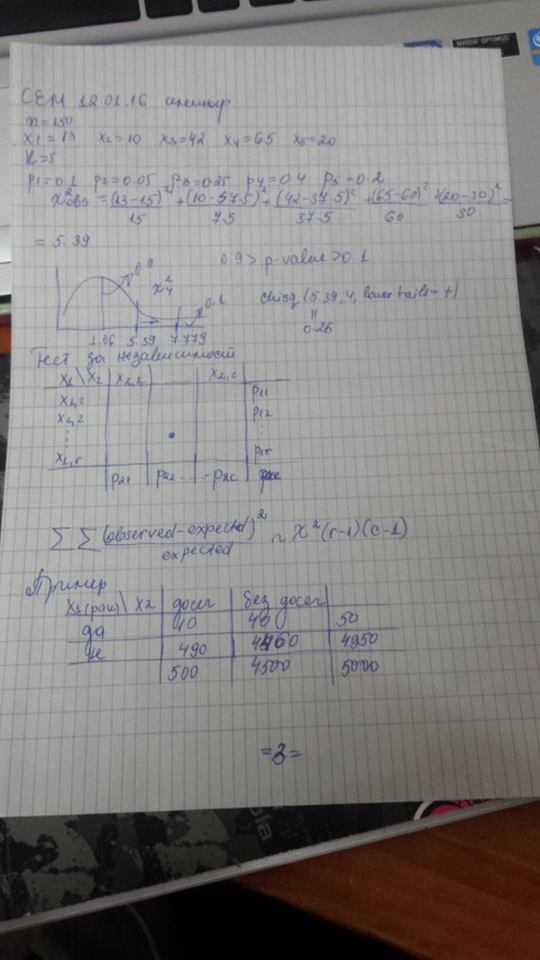 СЕМ 12.01.16 семинар
n=150
x1=13 x2=10 x3=42 x4=65 x5=20
k=5
p1=0.1 p2=0.05 p3=0.25 p4=0.4 p5=0.2
X²obs = (13-15)²/15 + (10-57.5)²/7.5 + (42-37.5)²/37.5 + (65-60)²/60 + (20-30)²/30 =
= 5.39
0.9 X²4 0.1 0.9 > p-value > 0.1
chisq (5.39, 4, lower tail = +)
=
0.25
1.06 5.39 7.779
Тест за независимост
X1\X2 X2,1 X2,c
X1,1 p11
X1,2 p12
X1,r p1r
p21 p22 p2c
ΣΣ (observed-expected)²/expected ~ X²(r-1)(c-1)
Пример
X1(рак)\X2 досег без досег
да 10 40 50
не 490 4460 4950
500 4500 5000
=3=
NVIDIA OPTIMUS